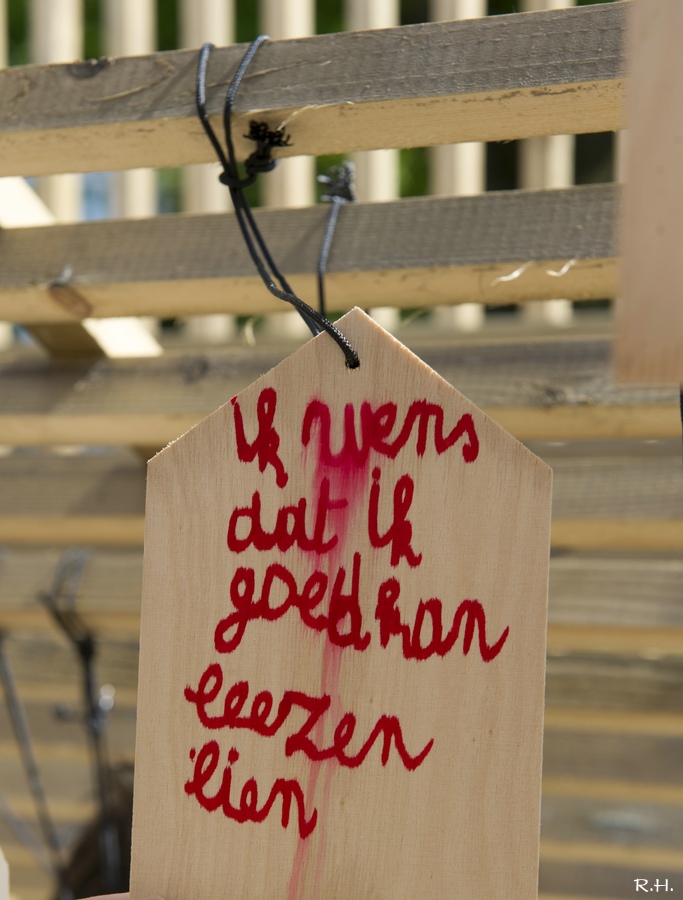 ik wens
dat ik
goed kan
leezen
lien
R.H.